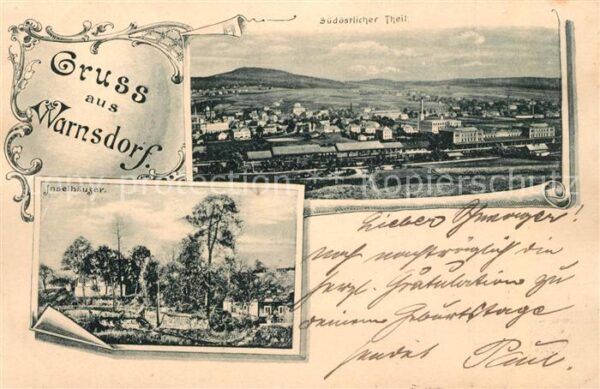 Südöstlicher Theil.
Gruss
aus
Warnsdorf.
Inselhäuser.
protection Kopierschutz
Lieber Schwager!
noch nachträglich die
herzl. Gratulation zu
deinem Geburtstage
sendet Paul.